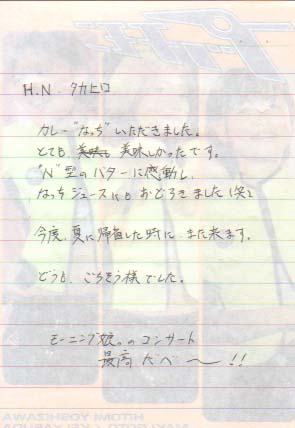 H.N. タカヒロ
カレー"なっち"いただきました。
とても 美味しかったです。
"N"型のバターに感動し、
なっちジュースにもおどろきました(笑)
今度、夏に帰省した時に また来ます。
どうも、ごちそう様でした。
モーニング娘。のコンサート
最高 だべ〜!!
HITOMI YOSHIZAWA
MAKI GOTO / KEI YASUDA